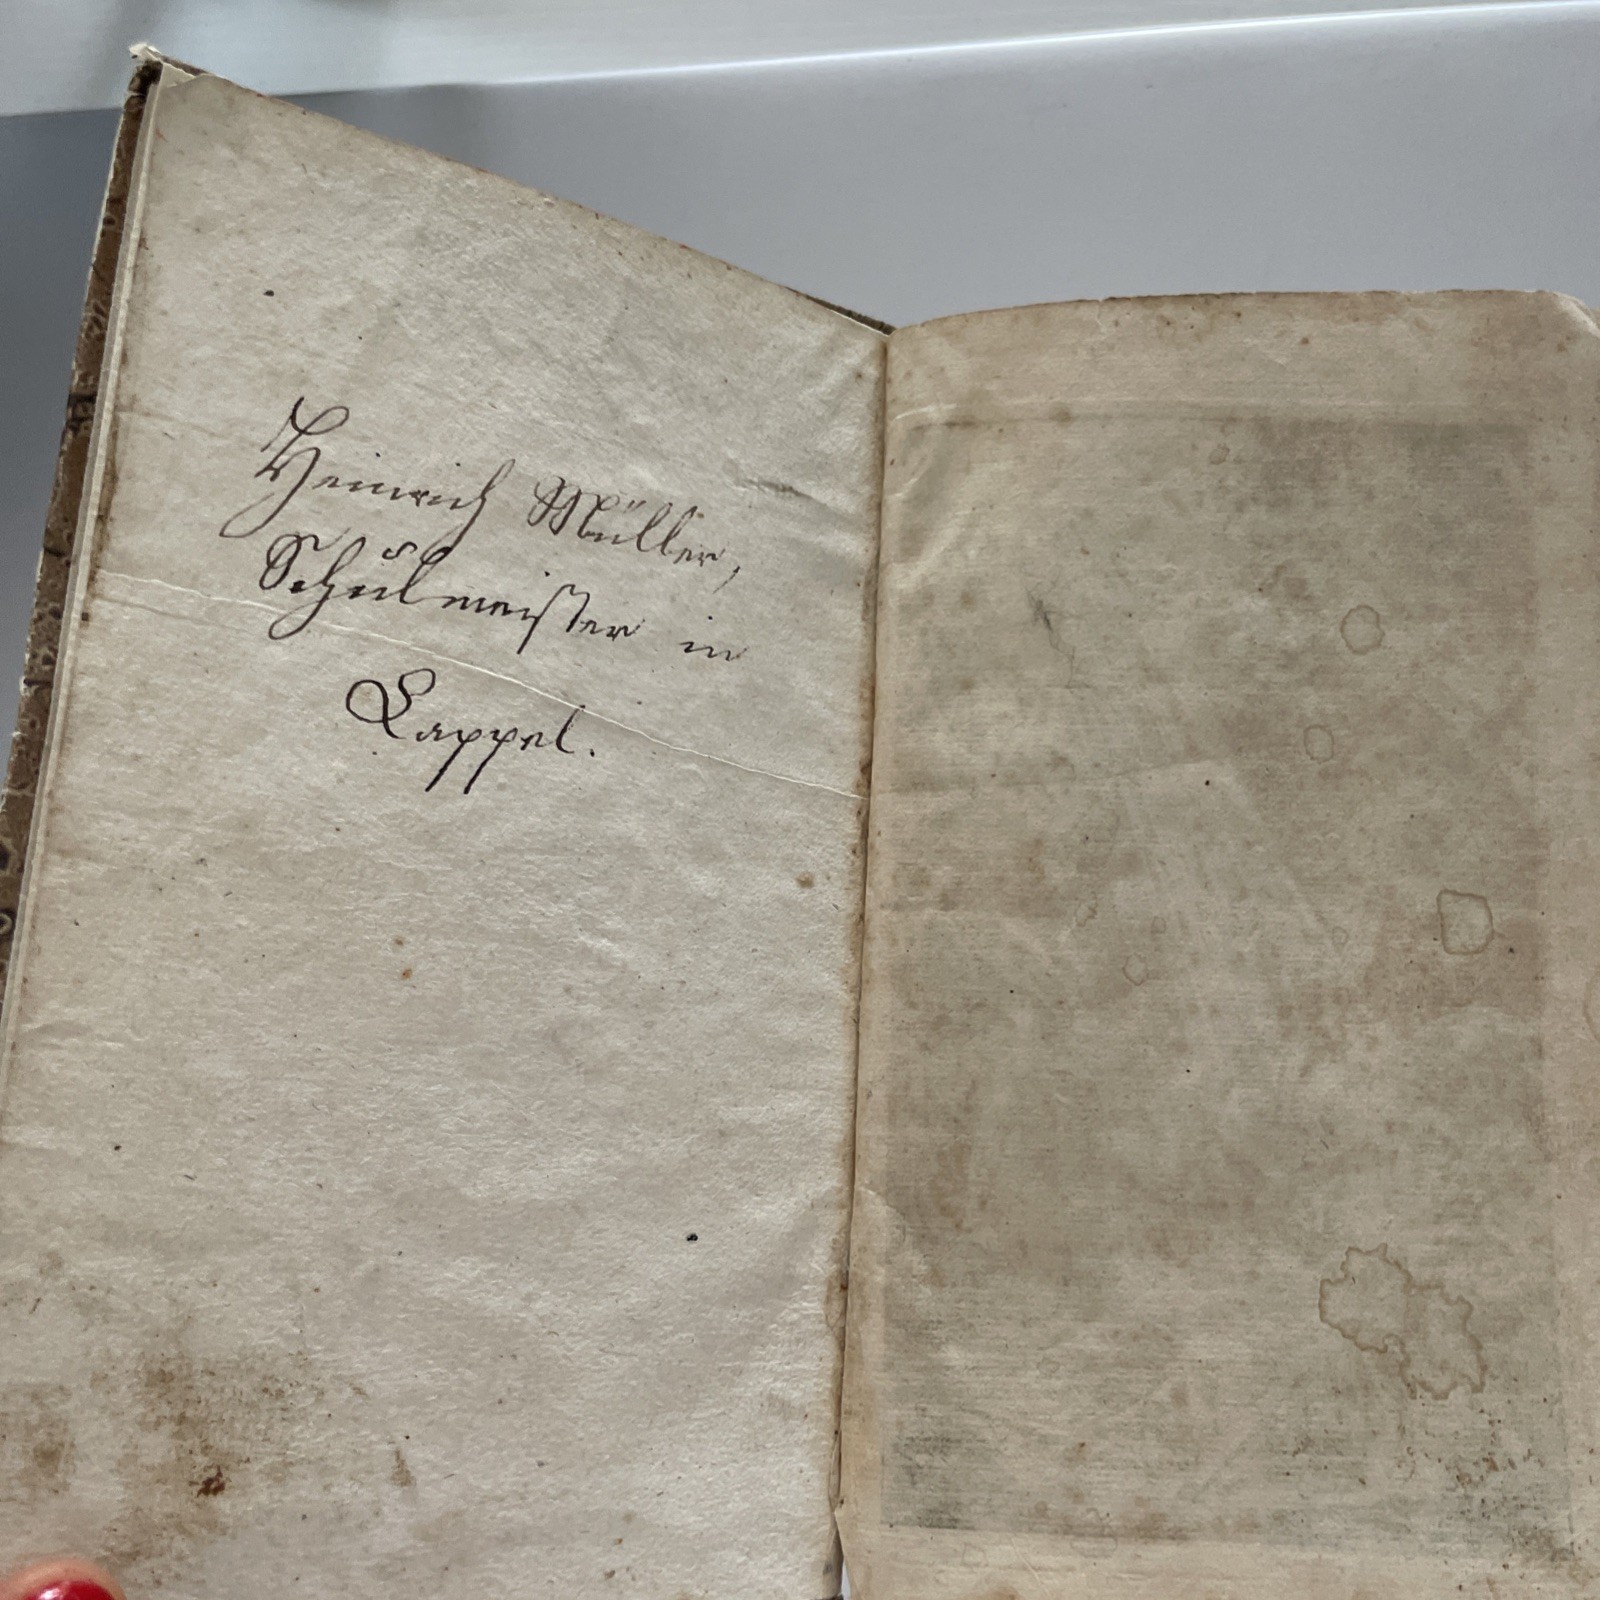 Heinrich Müller,
Schulmeister in
Cappel.